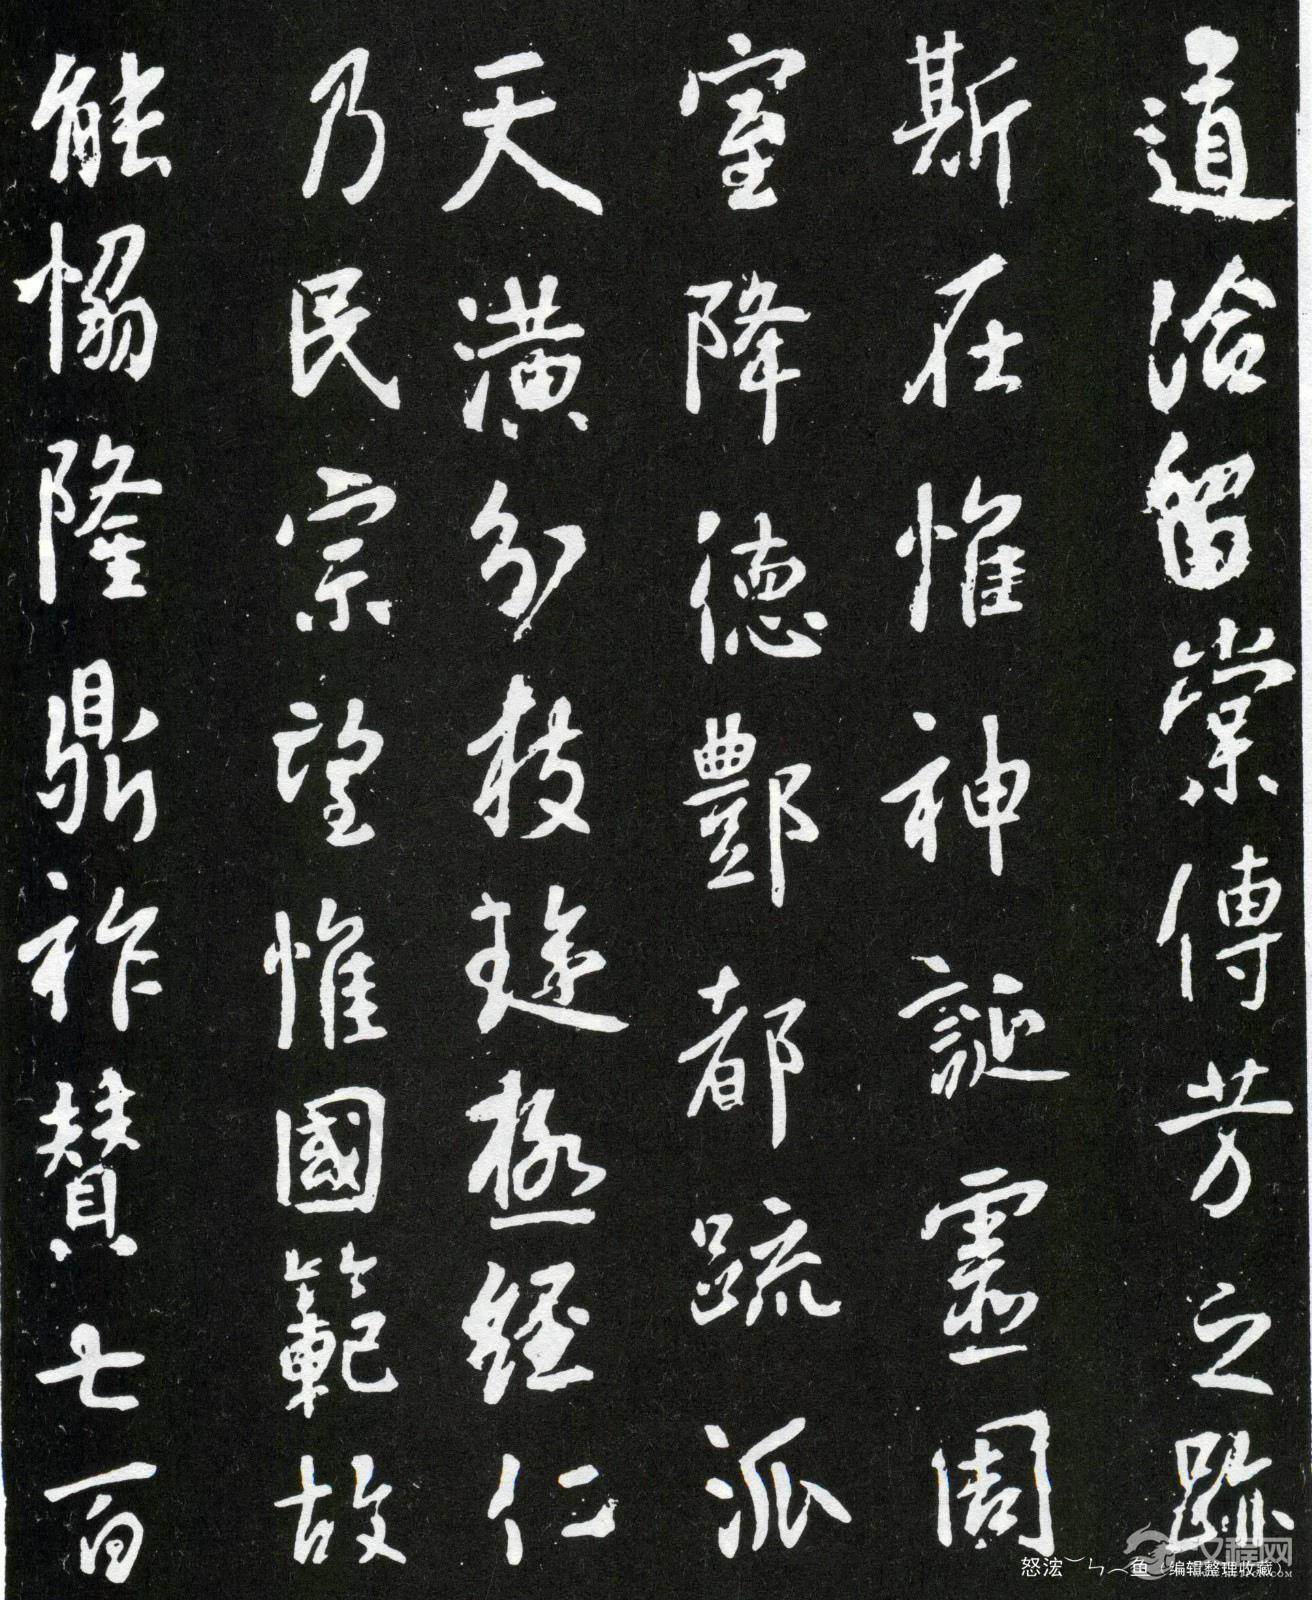 道洽留棠傳芳之跡
斯在惟神誕靈周
室降德酆都疏派
天潢分枝璇極經仁
乃民宗望惟國範故
能恊隆鼎祚贊七百
怒浤︶ㄣ︵鱼（编辑整理收藏）